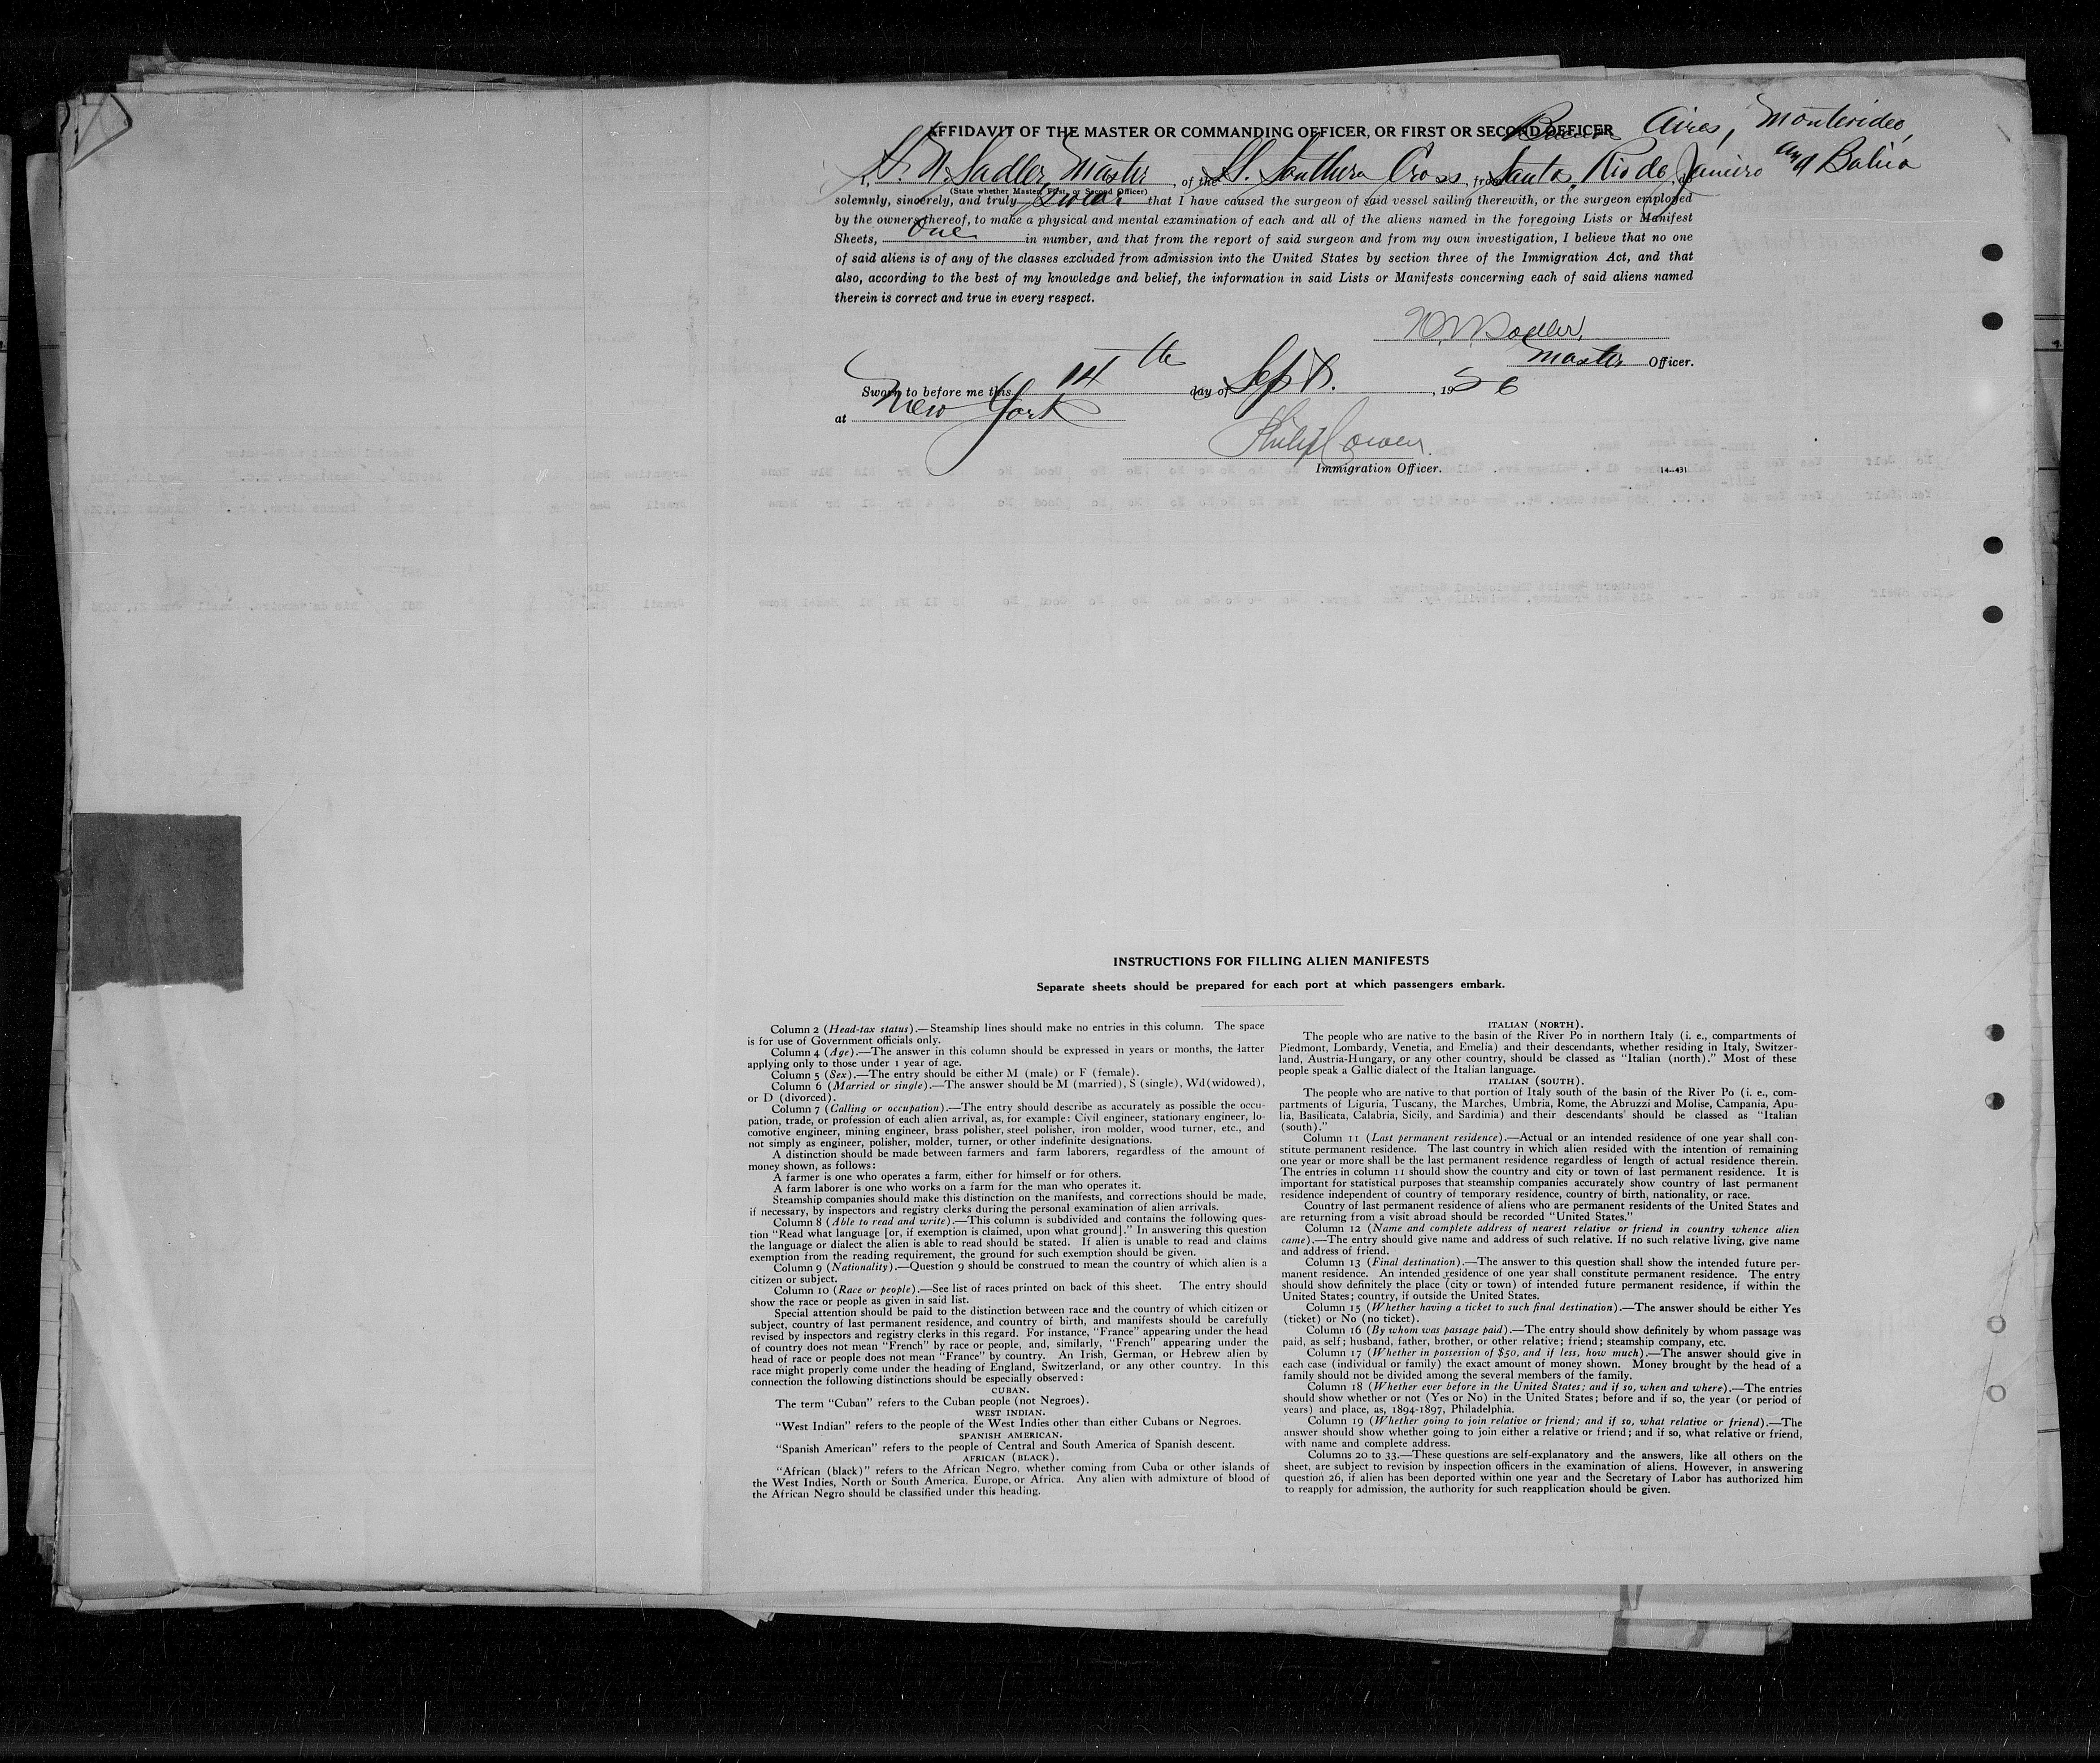 AFFIDAVIT OF THE MASTER OR COMMANDING OFFICER, OR FIRST OR SECOND OFFICER
Buenos Aires, Montevideo,
I, Sadler, Master, of the SS. Southern Cross, from Santos, Rio de Janeiro and Bahia, do
(State whether Master, First, or Second Officer)
solemnly, sincerely, and truly swear that I have caused the surgeon of said vessel sailing therewith, or the surgeon employed
by the owners thereof, to make a physical and mental examination of each and all of the aliens named in the foregoing Lists or Manifest
Sheets, One in number, and that from the report of said surgeon and from my own investigation, I believe that no one
of said aliens is of any of the classes excluded from admission into the United States by section three of the Immigration Act, and that
also, according to the best of my knowledge and belief, the information in said Lists or Manifests concerning each of said aliens named
therein is correct and true in every respect.
Sadler,
Master Officer.
Sworn to before me this 14th day of Sept., 19
at New York
Philip Cowen.
Immigration Officer. 14—431
INSTRUCTIONS FOR FILLING ALIEN MANIFESTS
Separate sheets should be prepared for each port at which passengers embark.
Column 2 (Head-tax status).—Steamship lines should make no entries in this column. The space
is for use of Government officials only.
Column 4 (Age).—The answer in this column should be expressed in years or months, the latter
applying only to those under 1 year of age.
Column 5 (Sex).—The entry should be either M (male) or F (female).
Column 6 (Married or single).—The answer should be M (married), S (single), Wd (widowed),
or D (divorced).
Column 7 (Calling or occupation).—The entry should describe as accurately as possible the occu-
pation, trade, or profession of each alien arrival, as, for example: Civil engineer, stationary engineer, lo-
comotive engineer, mining engineer, brass polisher, steel polisher, iron molder, wood turner, etc., and
not simply as engineer, polisher, molder, turner, or other indefinite designations.
A distinction should be made between farmers and farm laborers, regardless of the amount of
money shown, as follows:
A farmer is one who operates a farm, either for himself or for others.
A farm laborer is one who works on a farm for the man who operates it.
Steamship companies should make this distinction on the manifests, and corrections should be made,
if necessary, by inspectors and registry clerks during the personal examination of alien arrivals.
Column 8 (Able to read and write).—This column is subdivided and contains the following ques-
tion "Read what language [or, if exemption is claimed, upon what ground]." In answering this question
the language or dialect the alien is able to read should be stated. If alien is unable to read and claims
exemption from the reading requirement, the ground for such exemption should be given.
Column 9 (Nationality).—Question 9 should be construed to mean the country of which alien is a
citizen or subject.
Column 10 (Race or people).—See list of races printed on back of this sheet. The entry should
show the race or people as given in said list.
Special attention should be paid to the distinction between race and the country of which citizen or
subject, country of last permanent residence, and country of birth, and manifests should be carefully
revised by inspectors and registry clerks in this regard. For instance, "France" appearing under the head
of country does not mean "French" by race or people, and, similarly, "French" appearing under the
head of race or people does not mean "France" by country. An Irish, German, or Hebrew alien by
race might properly come under the heading of England, Switzerland, or any other country. In this
connection the following distinctions should be especially observed:
CUBAN.
The term "Cuban" refers to the Cuban people (not Negroes).
WEST INDIAN.
"West Indian" refers to the people of the West Indies other than either Cubans or Negroes.
SPANISH AMERICAN.
"Spanish American" refers to the people of Central and South America of Spanish descent.
AFRICAN (BLACK).
"African (black)" refers to the African Negro, whether coming from Cuba or other islands of
the West Indies, North or South America, Europe, or Africa. Any alien with admixture of blood of
the African Negro should be classified under this heading.
ITALIAN (NORTH).
The people who are native to the basin of the River Po in northern Italy (i. e., compartments of
Piedmont, Lombardy, Venetia, and Emelia) and their descendants, whether residing in Italy, Switzer-
land, Austria-Hungary, or any other country, should be classed as "Italian (north)." Most of these
people speak a Gallic dialect of the Italian language.
ITALIAN (SOUTH).
The people who are native to that portion of Italy south of the basin of the River Po (i. e., com-
partments of Liguria, Tuscany, the Marches, Umbria, Rome, the Abruzzi and Molise, Campania, Apu-
lia, Basilicata, Calabria, Sicily, and Sardinia) and their descendants should be classed as "Italian
(south)."
Column 11 (Last permanent residence).—Actual or an intended residence of one year shall con-
stitute permanent residence. The last country in which alien resided with the intention of remaining
one year or more shall be the last permanent residence regardless of length of actual residence therein.
The entries in column 11 should show the country and city or town of last permanent residence. It is
important for statistical purposes that steamship companies accurately show country of last permanent
residence independent of country of temporary residence, country of birth, nationality, or race.
Country of last permanent residence of aliens who are permanent residents of the United States and
are returning from a visit abroad should be recorded "United States."
Column 12 (Name and complete address of nearest relative or friend in country whence alien
came).—The entry should give name and address of such relative. If no such relative living, give name
and address of friend.
Column 13 (Final destination).—The answer to this question shall show the intended future per-
manent residence. An intended residence of one year shall constitute permanent residence. The entry
should show definitely the place (city or town) of intended future permanent residence, if within the
United States; country, if outside the United States.
Column 15 (Whether having a ticket to such final destination).—The answer should be either Yes
(ticket) or No (no ticket).
Column 16 (By whom was passage paid).—The entry should show definitely by whom passage was
paid, as self; husband, father, brother, or other relative; friend; steamship company, etc.
Column 17 (Whether in possession of $50, and if less, how much).—The answer should give in
each case (individual or family) the exact amount of money shown. Money brought by the head of a
family should not be divided among the several members of the family.
Column 18 (Whether ever before in the United States; and if so, when and where).—The entries
should show whether or not (Yes or No) in the United States; before and if so, the year (or period of
years) and place, as, 1894-1897, Philadelphia.
Column 19 (Whether going to join relative or friend; and if so, what relative or friend).—The
answer should show whether going to join either a relative or friend; and if so, what relative or friend,
with name and complete address.
Columns 20 to 33.—These questions are self-explanatory and the answers, like all others on the
sheet, are subject to revision by inspection officers in the examination of aliens. However, in answering
question 26, if alien has been deported within one year and the Secretary of Labor has authorized him
to reapply for admission, the authority for such reapplication should be given.